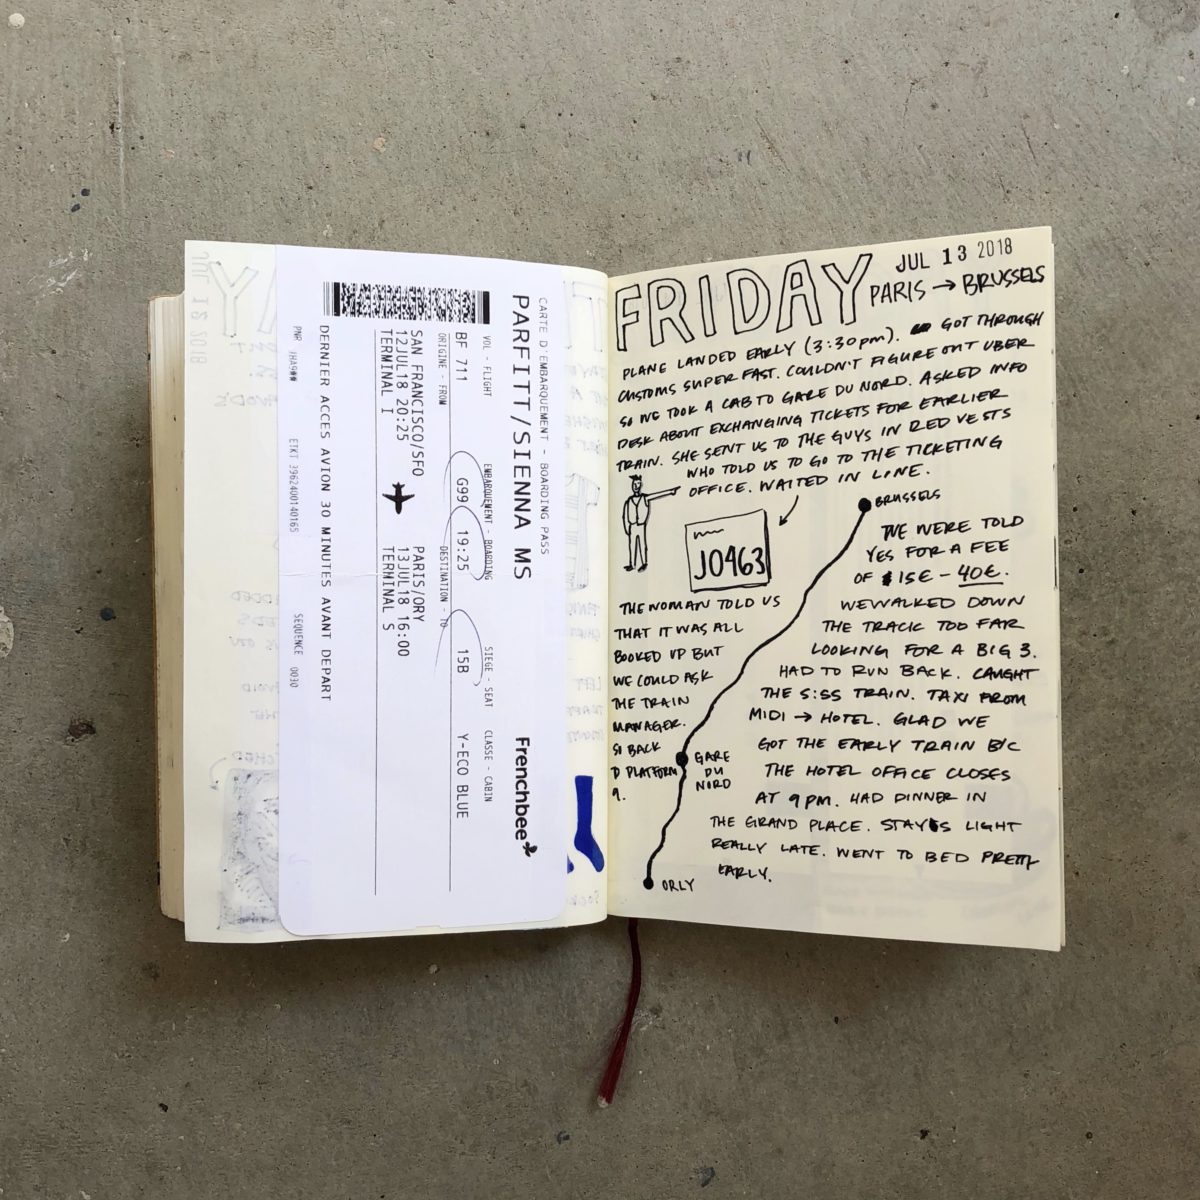 CARTE D'EMBARQUEMENT - BOARDING PASS
PARFITT/SIENNA MS
Frenchbee
VOL - FLIGHT EMBARQUEMENT - BOARDING SIEGE - SEAT CLASSE - CABIN
BF 711 G99 19:25 15B Y-ECO BLUE
ORIGINE - FROM DESTINATION - TO
SAN FRANCISCO/SFO PARIS/ORY
12JUL18 20:25 13JUL18 16:00
TERMINAL I TERMINAL S
DERNIER ACCES AVION 30 MINUTES AVANT DEPART
PNR ETKT 3962400140165 SEQUENCE 0030
FRIDAY
JUL 13 2018
PARIS → BRUSSELS
PLANE LANDED EARLY (3:30pm). GOT THROUGH
CUSTOMS SUPER FAST. COULDN'T FIGURE OUT UBER
SO WE TOOK A CAB TO GARE DU NORD. ASKED INFO
DESK ABOUT EXCHANGING TICKETS FOR EARLIER
TRAIN. SHE SENT US TO THE GUYS IN RED VESTS
WHO TOLD US TO GO TO THE TICKETING
OFFICE. WAITED IN LINE.
J0463
THE WOMAN TOLD US
THAT IT WAS ALL
BOOKED UP BUT
WE COULD ASK
THE TRAIN
MANAGER.
SO BACK
PLATFORM
9.
BRUSSELS
GARE
DU
NORD
ORLY
WE WERE TOLD
YES FOR A FEE
OF 15€ - 40€.
WE WALKED DOWN
THE TRACK TOO FAR
LOOKING FOR A BIG 3.
HAD TO RUN BACK. CAUGHT
THE 5:55 TRAIN. TAXI FROM
MIDI → HOTEL. GLAD WE
GOT THE EARLY TRAIN B/C
THE HOTEL OFFICE CLOSES
AT 9PM. HAD DINNER IN
THE GRAND PLACE. STAYS LIGHT
REALLY LATE. WENT TO BED PRETTY
EARLY.